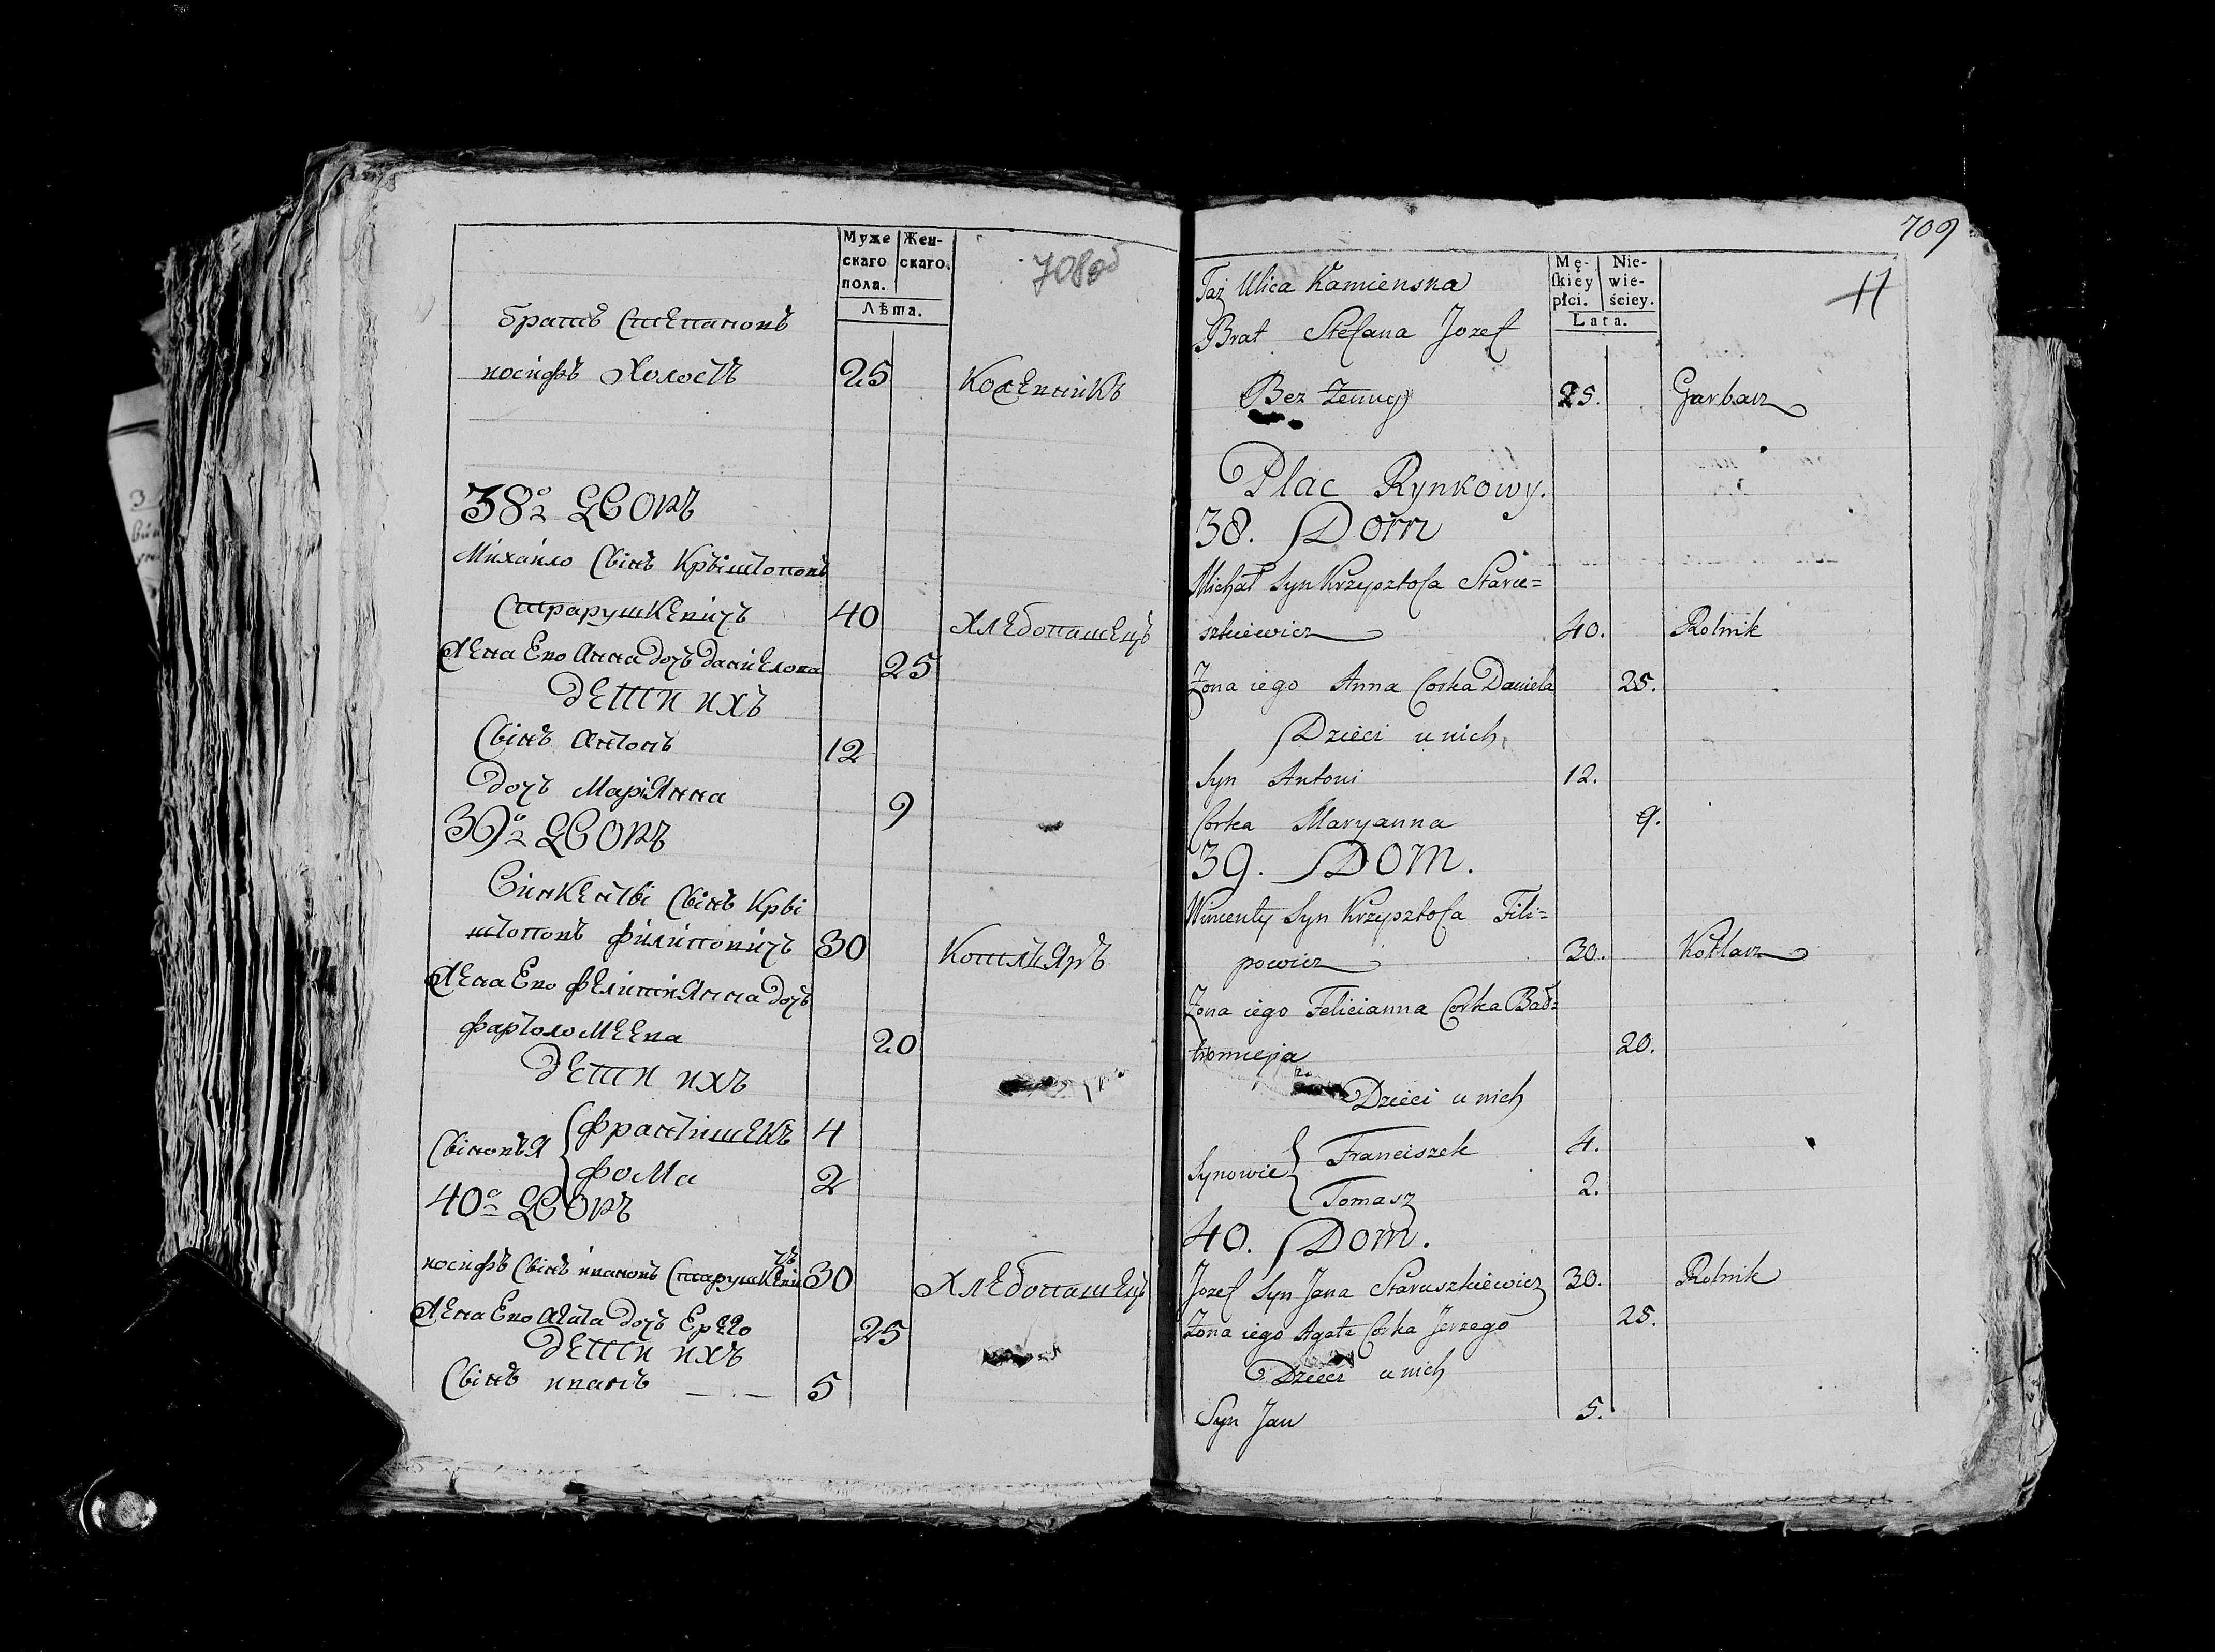 Муже
скаго
пола.
Жен-
скаго.
Лѣта.
708об
братъ Степановъ
иосифъ Холостъ 25 Кожевникъ
38й Дворъ
Михайло Свінъ Крвіштоповъ
Старушкевичъ 40 Хлебопашецъ
Жена Ево Анна дочъ данйелова 25
дети ихъ
Свінъ Антонъ 12
дочъ МаріЯнна 9
39й Дворъ
Винкентві Свінъ Крві
штоповъ филиповичъ 30 КотлЯръ
Жена Ево ФелициЯнна дочъ
фартоломЕЕва 20
дети ихъ
СвіновъЯ { францишекъ 4
фома 2
40й Дворъ
иосифъ Свінъ ивановъ Старушкевичъ 30 Хлебопашецъ
Жена Ево Агата дочъ 25
дети ихъ
Свінъ иванъ 5
709
11
Mę-
skiey
płci.
Nie-
wie-
ściey.
Lata.
Taż Ulica Kamienska
Brat Stefana Jozef
Bez Zenny 25. Garbarz
Plac Rynkowy.
38. Dom
Michał Syn Krzysztofa Staru=
szkiewicz 40. Rolnik
Żona iego Anna Corka Daniela 25.
Dzieci u nich
Syn Antoni 12.
Corka Maryanna 9.
39. Dom.
Wincenty Syn Krzysztofa Fili=
powicz 30. Kotlarz
Żona iego Felicianna Corka Bał=
tromieja 20.
Dzieci u nich
Synowie { Franciszek 4.
Tomasz 2.
40. Dom.
Jozef Syn Jana Staruszkiewicz 30. Rolnik
Żona iego Agata Corka Jerzego 25.
Dzieci u nich
Syn Jan 5.